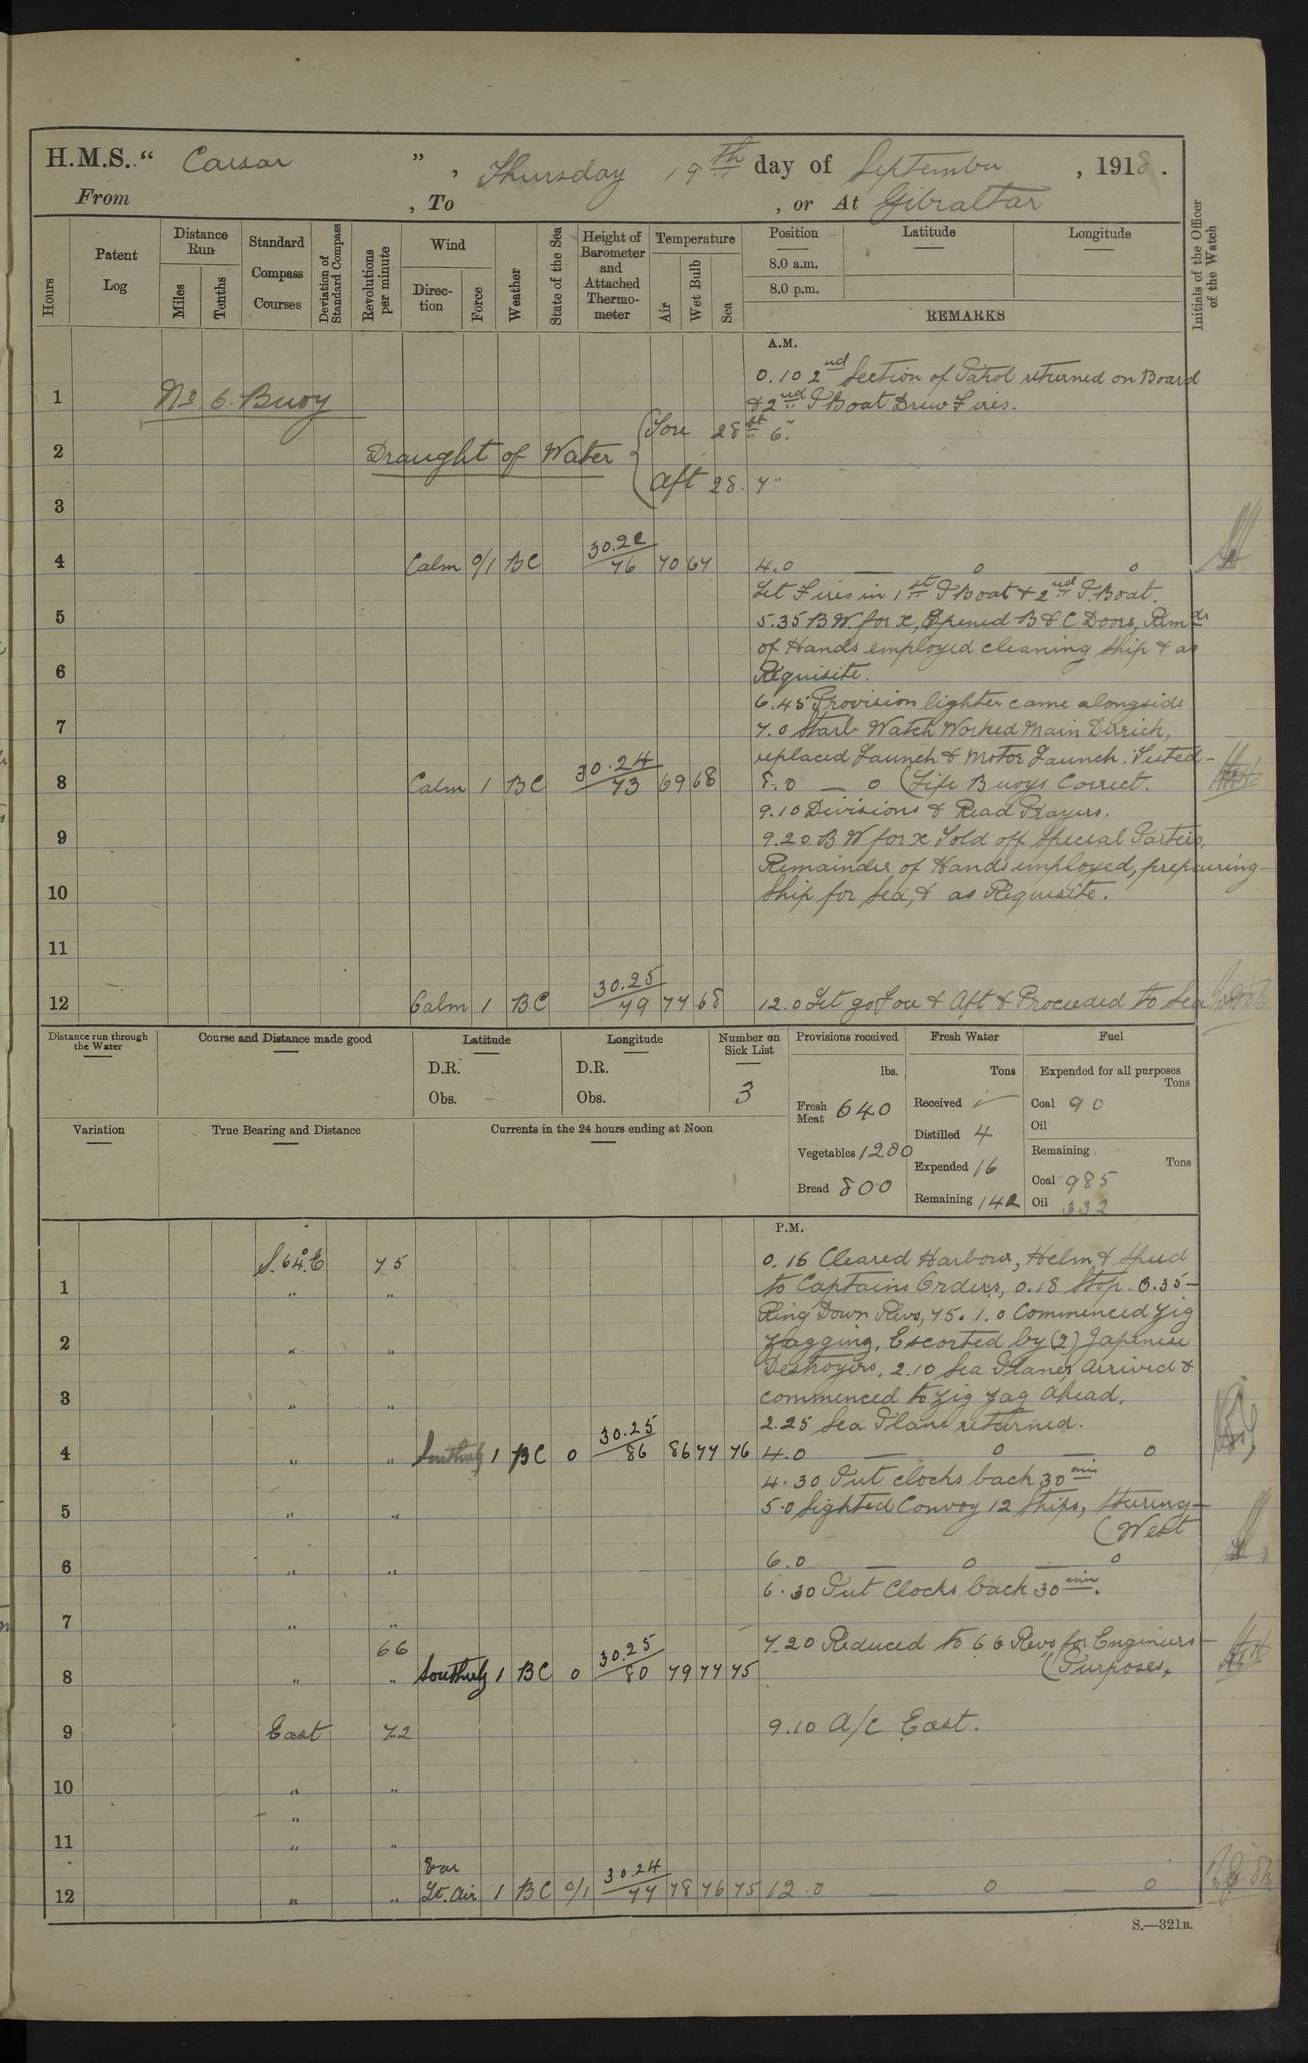 H.M.S. "Caesar", Thursday 19th day of September, 1918.
From , To , or At Gibraltar
Hours
Patent Log
Distance Run
Miles
Tenths
Standard Compass Courses
Deviation of Standard Compass
Revolutions per minute
Wind
Direction
Force
Weather
State of the Sea
Height of Barometer and Attached Thermometer
Temperature
Air
Wet Bulb
Sea
Position Latitude Longitude
8.0 a.m.
8.0 p.m.
REMARKS
Initials of the Officer of the Watch
A.M.
0.10 2nd Section of Patrol returned on Board
1 No 6. Buoy & 2nd P Boat Drew Fires.
2 Draught of Water { Fore 28 ft 6"
Aft 28. 7"
3
4 Calm 0/1 BC 30.22 76 70 67 4.0 — 0 — 0
Let Fires in 1st P Boat & 2nd P. Boat.
5 5.35 B W. for x, Opened B & C Doors, Remdr
of Hands employed cleaning Ship & as
6 Requisite.
6.45 Provision lighter came alongside
7 7.0 Starb Watch Worked Main Derrick,
replaced Launch & Motor Launch. Tested -
8 Calm 1 BC 30.24 73 69 68 8.0 — 0 (Life Buoys Correct.
9.10 Divisions & Read Prayers.
9 9.20 B W for x Told off Special Parties,
Remainder of Hands employed, prepairing -
10 Ship for Sea, & as Requisite.
11
12 Calm 1 BC 30.25 79 74 68 12.0 Let go Fore & Aft & Proceeded to Sea
Distance run through the Water
Course and Distance made good
Latitude
D.R.
Obs.
Longitude
D.R.
Obs.
Number on Sick List
3
Variation
True Bearing and Distance
Currents in the 24 hours ending at Noon
Provisions received
lbs.
Fresh Meat 640
Vegetables 1200
Bread 800
Fresh Water
Tons
Received
Distilled 4
Expended 16
Remaining 142
Fuel
Expended for all purposes
Tons
Coal 90
Oil
Remaining
Tons
Coal 985
Oil 332
P.M.
S. 64° E 75 0.16 Cleared Harbour, Helm & Speed
1 " " to Captains Orders, 0.18 Stop. 0.35 -
Ring Down Revs, 75. 1.0 Commenced Zig
2 " " Zagging, Escorted by (2) Japanese
Destroyers, 2.10 Sea Planes arrived &
3 " " commenced to Zig Zag ahead.
2.25 Sea Plane returned.
4 " " Southerly 1 BC 0 30.25 86 86 77 76 4.0 — 0 — 0
4.30 Put clocks back 30 min
5 " " 5.0 Sighted Convoy 12 Ships, Steering -
(West
6 " " 6.0 — 0 — 0
6.30 Put Clocks back 30 min.
7 " "
66 7.20 Reduced to 66 Revs for Engineers -
8 " " Southerly 1 BC 0 30.25 80 79 77 75 (Purposes.
9 East 72 9.10 A/c East.
10 " "
"
11 " "
Var
12 " " Lt. Air 1 BC 0/1 30.24 77 78 76 75 12.0 0 — 0
S.—321B.